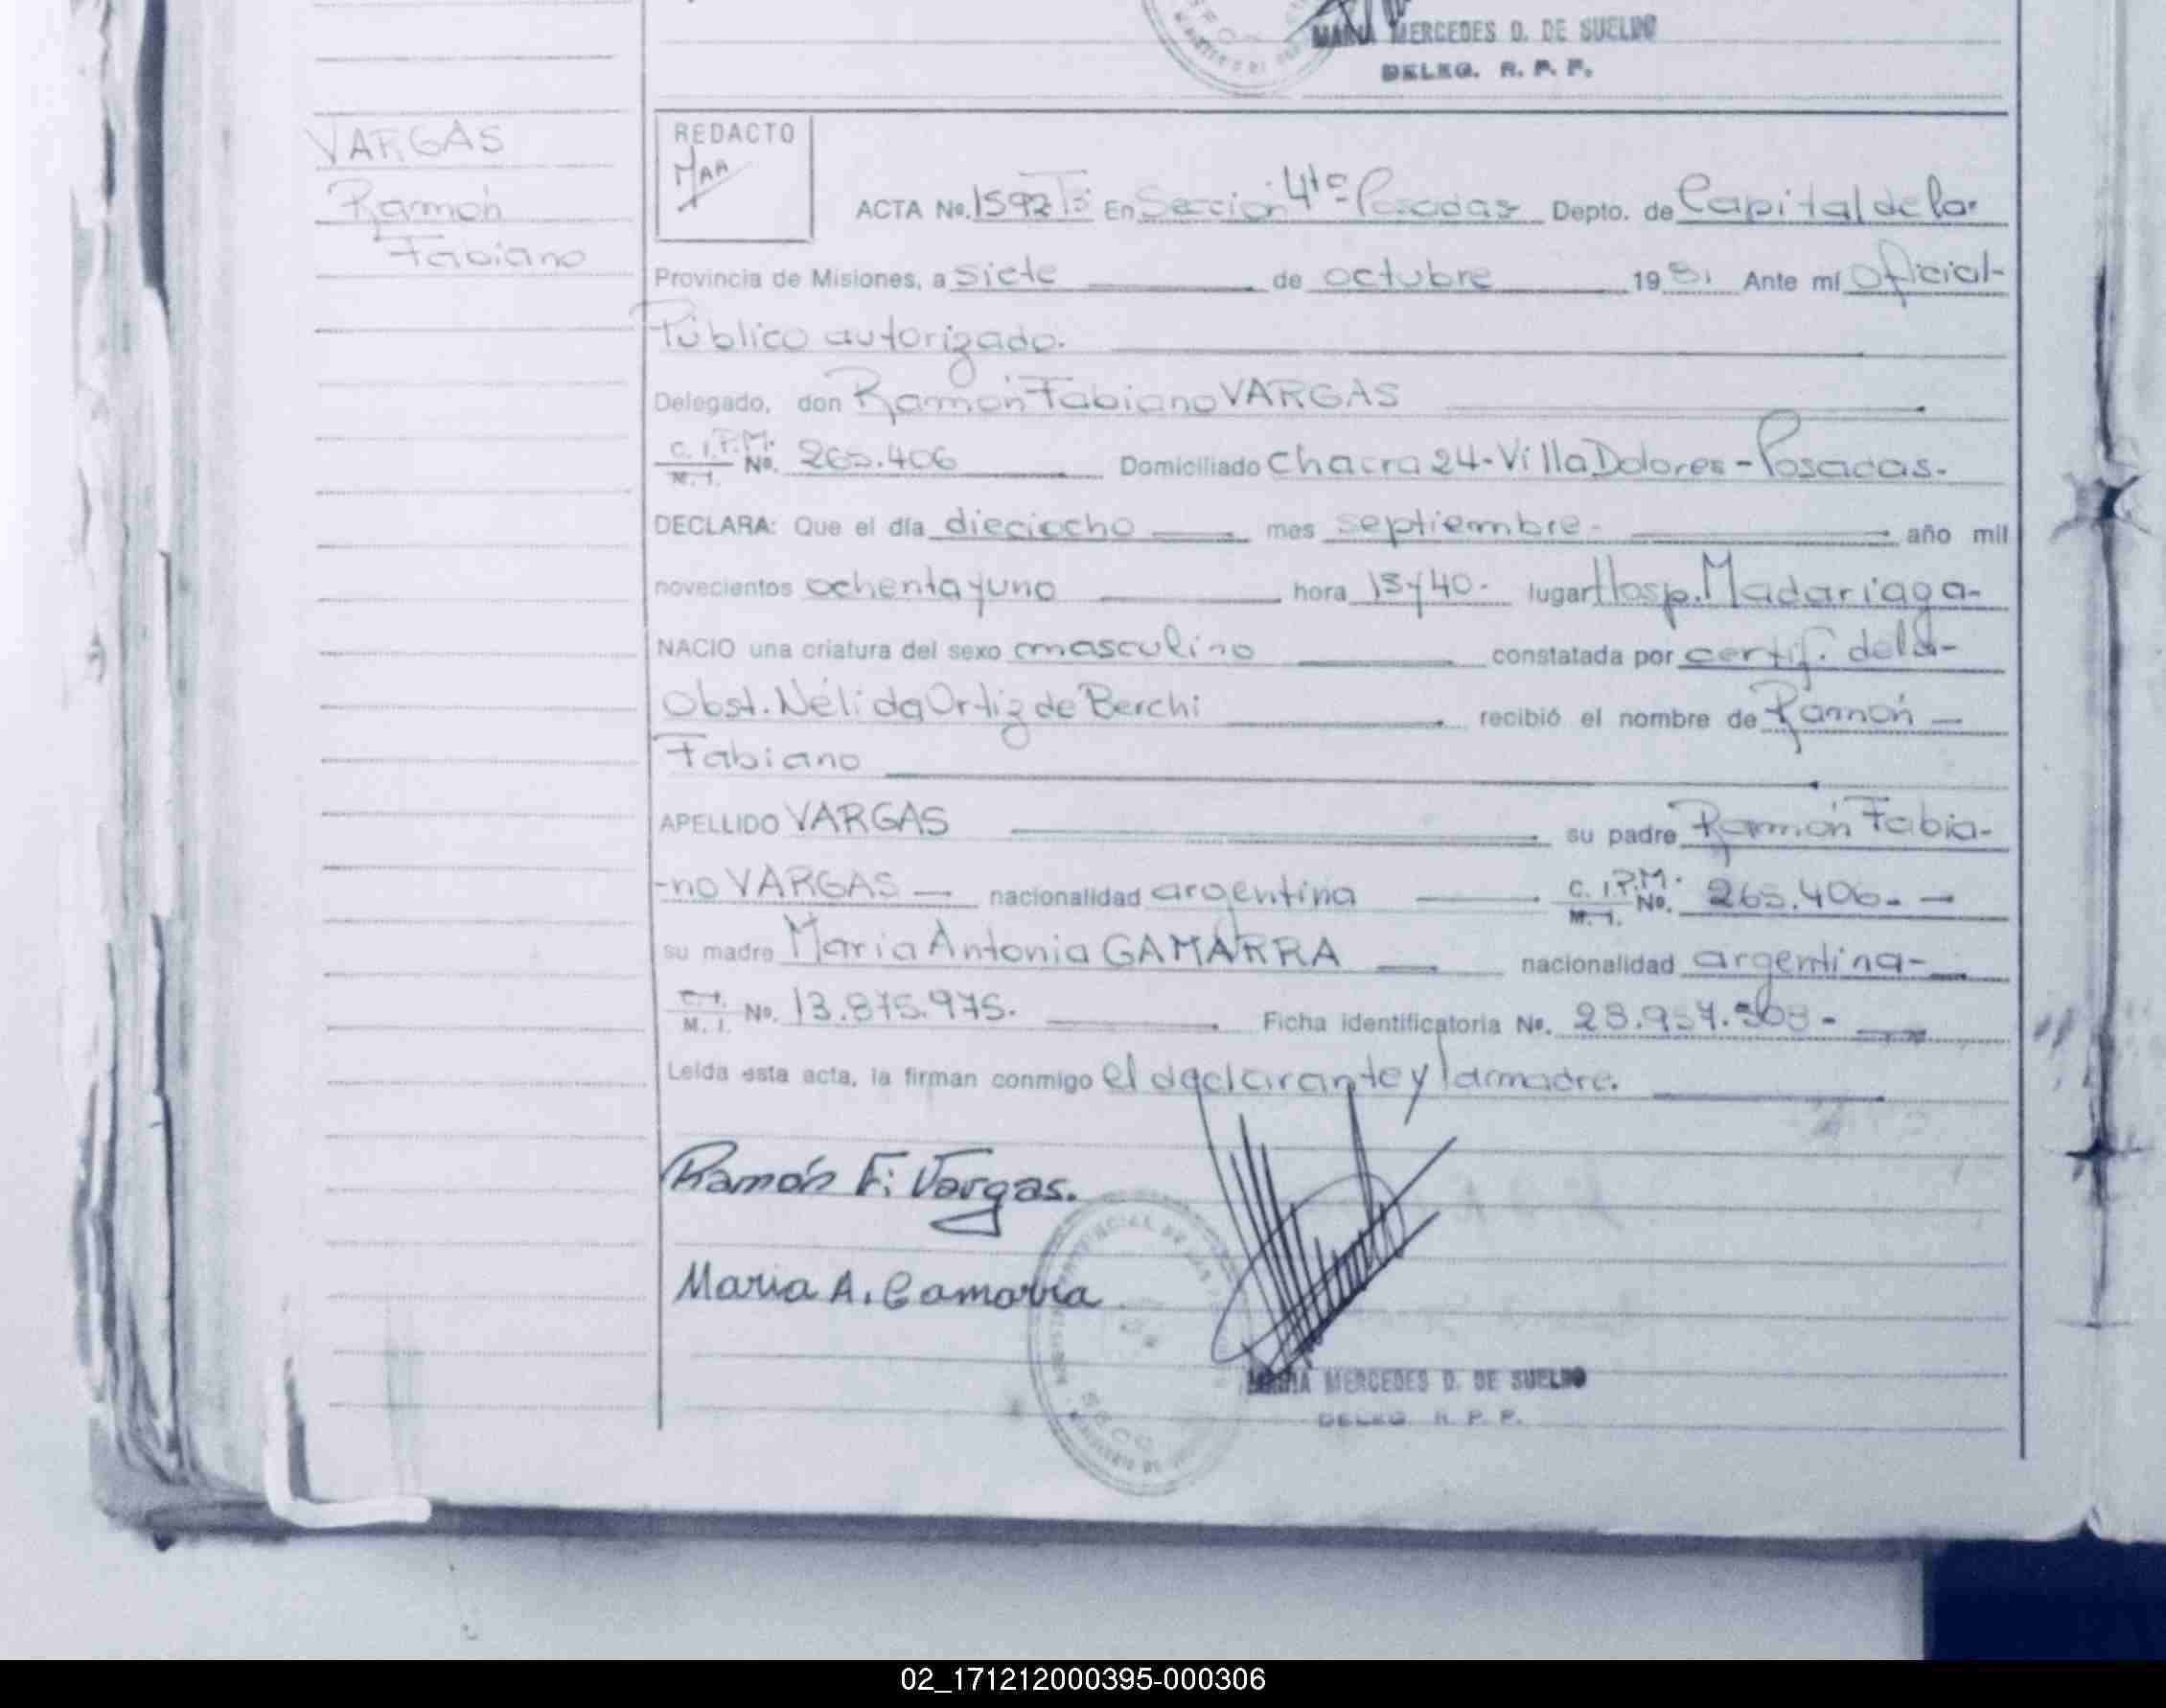 MARIA MERCEDES D. DE SUELDO
DELEG. R. P. P.
VARGAS
Ramón
Fabiano
REDACTO
MAA
ACTA No. 1592 Tº En Sección 4ta Posadas Depto. de Capital de la
Provincia de Misiones, a siete de octubre 1981 Ante mí Oficial-
Público autorizado.
Delegado, don Ramón Fabiano VARGAS
C. I.P.M. No. 265.406 Domiciliado Chacra 24-Villa Dolores-Posadas.
M. I.
DECLARA: Que el día dieciocho mes septiembre- año mil
novecientos ochenta y uno hora 15y40- lugar Hosp. Madariaga-
NACIO una criatura del sexo masculino constatada por certif. de la-
Obst. Nélida Ortiz de Berchi recibió el nombre de Ramón
Fabiano
APELLIDO VARGAS su padre Ramón Fabia-
-no VARGAS nacionalidad argentina C. I.P.M. No. 265.406.-
M. I.
su madre María Antonia GAMARRA nacionalidad argentina-
C. I.
M. I. No. 13.875.975. Ficha identificatoria No.
Leída esta acta, la firman conmigo el declarante y la madre.
Ramón F. Vargas.
Maria A. Gamarra
MARIA MERCEDES D. DE SUELDO
DELEG. R. P. P.
02_171212000395-000306